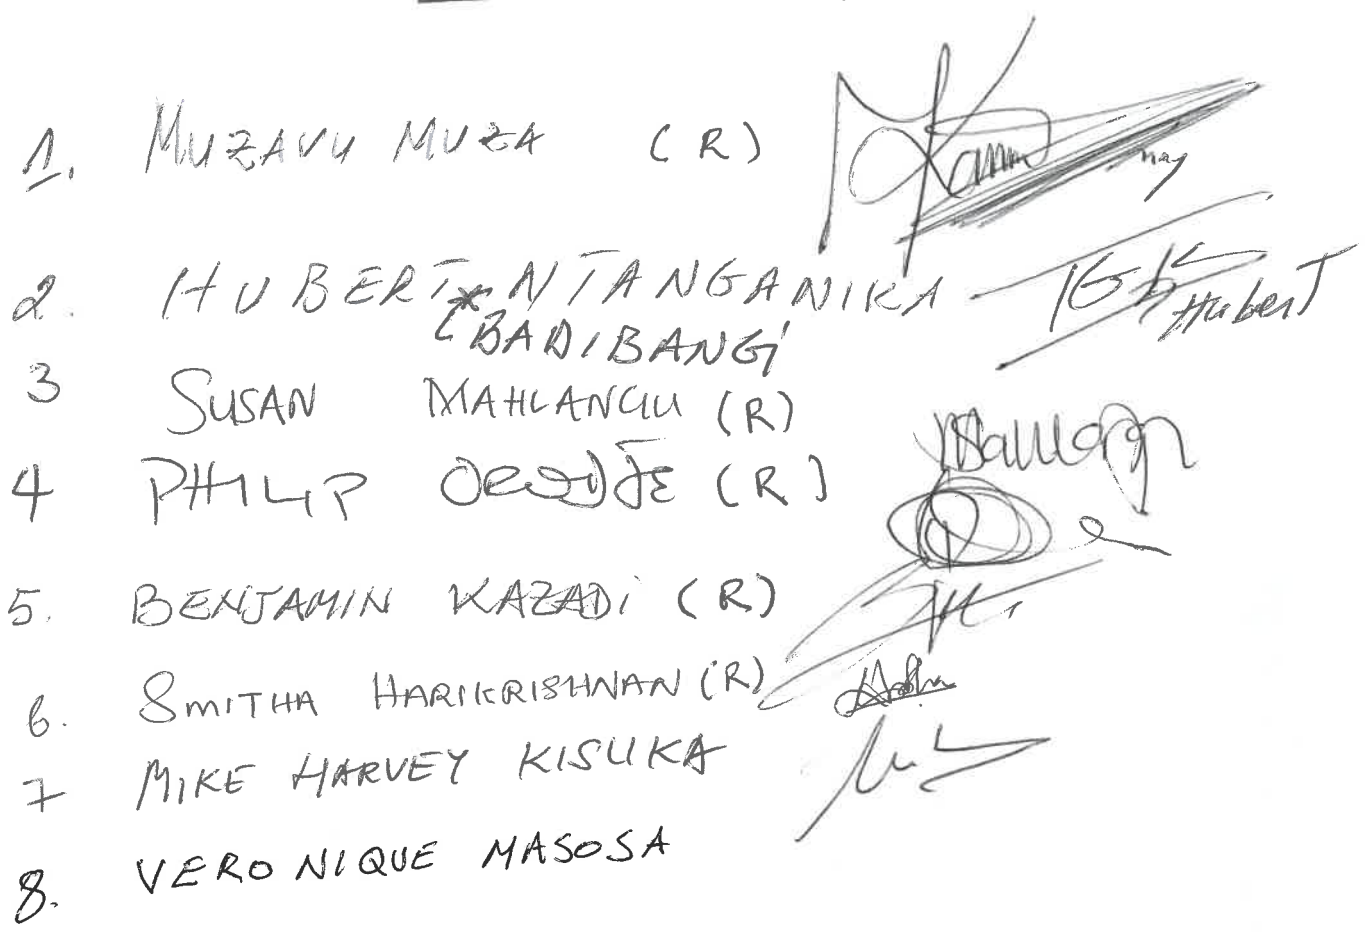 1. MUZAVU MUZA (R)
2. HUBERT NTANGANIKA Hubert
(BADIBANGI
3 SUSAN MAHLANGU (R)
4 PHILIP (R)
5. BENJAMIN KAZADi (R)
6. SMITHA HARIKRISHNAN (R)
7 MIKE HARVEY KISUKA
8. VERONIQUE MASOSA